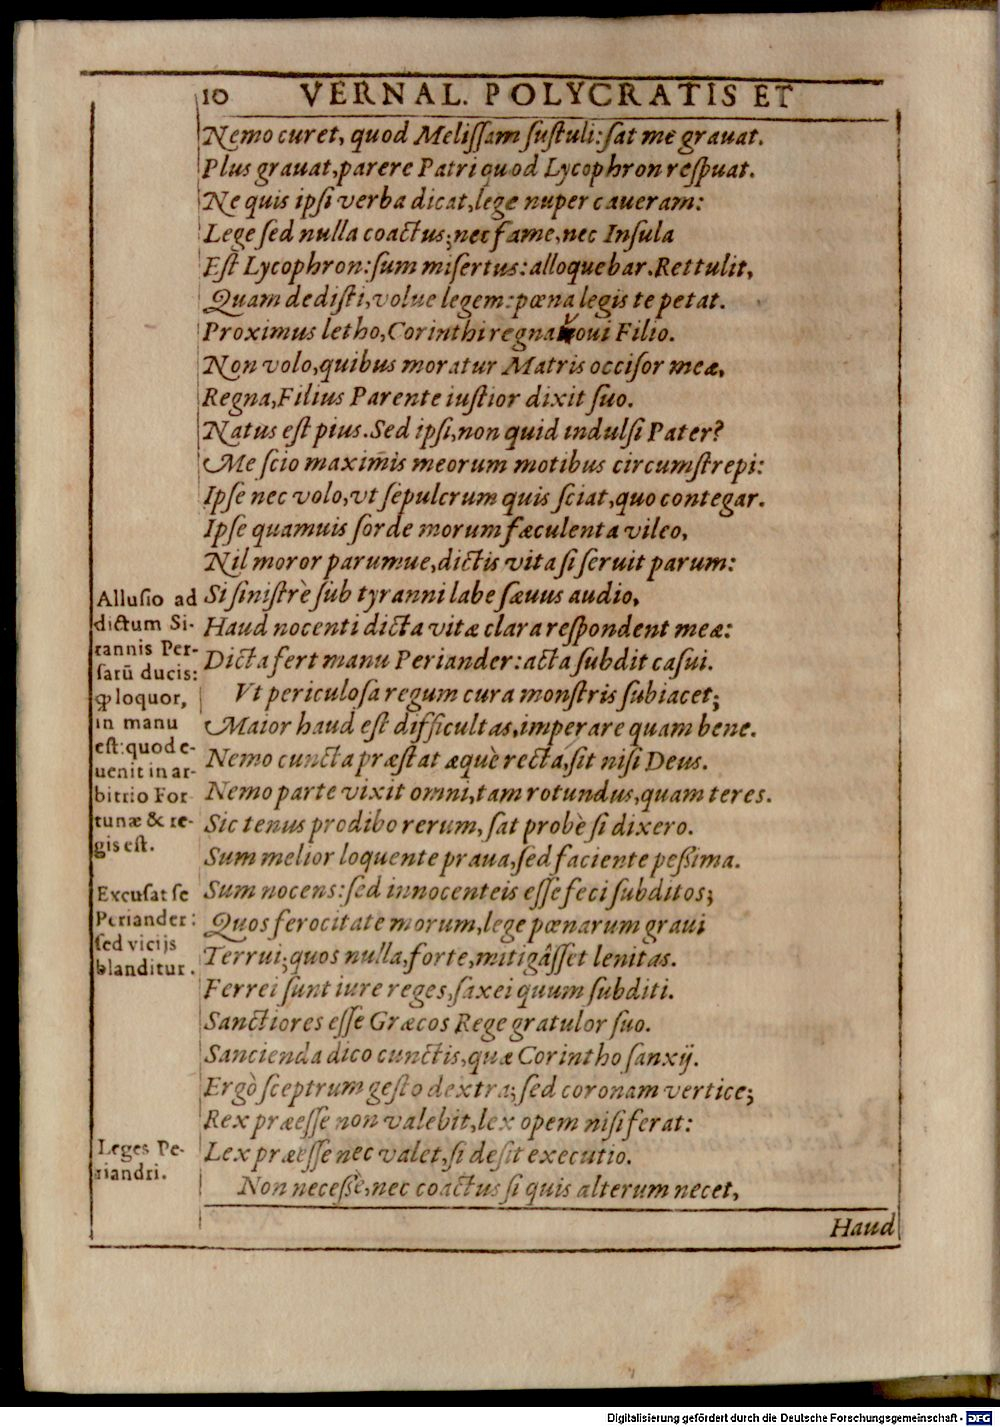 10 VERNAL. POLYCRATIS ET
Nemo curet, quod Melissam sustuli: sat me grauat.
Plus grauat, parere Patri quod Lycophron respuat.
Ne quis ipsi verba dicat, lege nuper caueram:
Lege sed nulla coactus; nec fame, nec Insula
Est Lycophron: sum misertus: alloquebar. Rettulit,
Quam dedisti, volue legem: pœna legis te petat.
Proximus letho, Corinthi regna voui Filio.
Non volo, quibus moratur Matris occisor meæ,
Regna, Filius Parente iustior dixit suo.
Natus est pius. Sed ipsi, non quid indulsi Pater?
Me scio maxim̄is meorum motibus circumstrepi:
Ipse nec volo, vt sepulcrum quis sciat, quo contegar.
Ipse quamuis sorde morum fæculenta vileo,
Nil moror parumue, dictis vita si seruit parum:
Si sinistrè sub tyranni labe sæuus audio,
Haud nocenti dicta vitæ clara respondent meæ:
Dicta fert manu Periander: acta subdit casui.
Vt periculosa regum cura monstris subiacet;
Maior haud est difficultas, imperare quam bene.
Nemo cuncta præstat æquè recta, sit nisi Deus.
Nemo parte vixit omni, tam rotundus, quam teres.
Sic tenus prodibo rerum, sat probè si dixero.
Sum melior loquente praua, sed faciente peßima.
Sum nocens: sed innocenteis esse feci subditos;
Quos ferocitate morum, lege pœnarum graui
Terrui; quos nulla, forte, mitigâsset lenitas.
Ferrei sunt iure reges, saxei quum subditi.
Sanctiores esse Græcos Rege gratulor suo.
Sancienda dico cunctis, quæ Corintho sanxij.
Ergò sceptrum gesto dextra; sed coronam vertice;
Rex præesse non valebit, lex opem nisi ferat:
Lex præesse nec valet, si desit executio.
Non necessè, nec coactus si quis alterum necet,
Haud
Allusio ad
dictum Si-
rannis Per-
sarū ducis:
ꝙ loquor,
in manu
est: quod e-
uenit in ar-
bitrio For
tunæ & re-
gis est.
Excusat se
Periander:
sed vicijs
blanditur.
Leges Pe-
riandri.
Digitalisierung gefördert durch die Deutsche Forschungsgemeinschaft - DFG